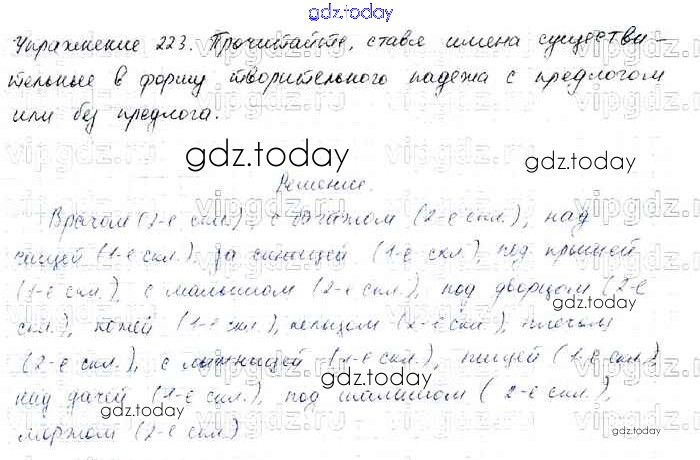 gdz.today
Упражнение 223. Прочитайте, ставя имена существи-
тельные в форму творительного падежа с предлогом
или без предлога.
gdz.today
gdz.today
Решение.
Врачом (2-е скл.), с багажом (2-е скл.), над
чащей (1-е скл.), за синицей (1-е скл.), под крышей
(1-е скл.), с малышом (2-е скл.), под дворцом (2-е
скл.), кожей (1-е скл.), кольцом (2-е скл.), плечом
(2-е скл.), с лыжницей (1-е скл.), пищей (1-е скл.)
над дачей (1-е скл.), под шалашом (2-е скл.),
моржом (2-е скл.)
gdz.today
gdz.today
gdz.today
vipgdz.ru